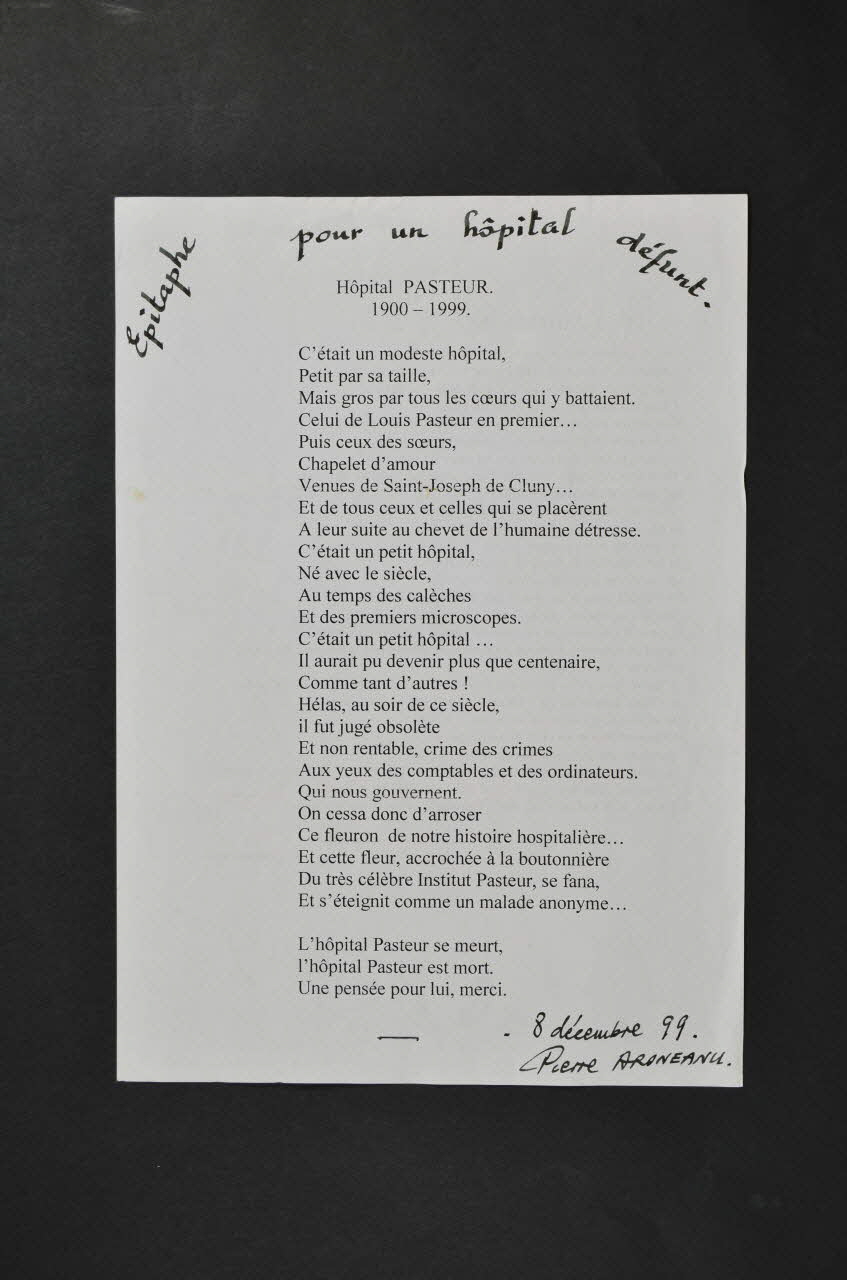 Epitaphe pour un hôpital défunt.
Hôpital PASTEUR.
1900 – 1999.
C’était un modeste hôpital,
Petit par sa taille,
Mais gros par tous les cœurs qui y battaient.
Celui de Louis Pasteur en premier…
Puis ceux des sœurs,
Chapelet d’amour
Venues de Saint-Joseph de Cluny…
Et de tous ceux et celles qui se placèrent
A leur suite au chevet de l’humaine détresse.
C’était un petit hôpital,
Né avec le siècle,
Au temps des calèches
Et des premiers microscopes.
C’était un petit hôpital …
Il aurait pu devenir plus que centenaire,
Comme tant d’autres !
Hélas, au soir de ce siècle,
il fut jugé obsolète
Et non rentable, crime des crimes
Aux yeux des comptables et des ordinateurs.
Qui nous gouvernent.
On cessa donc d’arroser
Ce fleuron de notre histoire hospitalière…
Et cette fleur, accrochée à la boutonnière
Du très célèbre Institut Pasteur, se fana,
Et s’éteignit comme un malade anonyme…
L’hôpital Pasteur se meurt,
l’hôpital Pasteur est mort.
Une pensée pour lui, merci.
- 8 décembre 99.
Pierre ARONEANU.